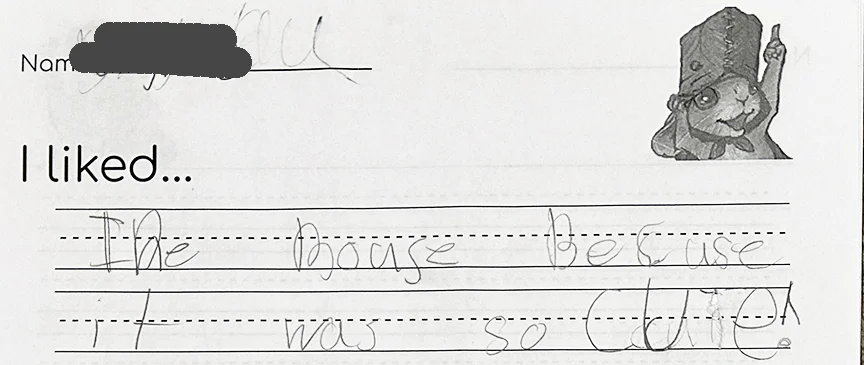 Nam
I liked...
The mouse Becuse
it was so CUTE!